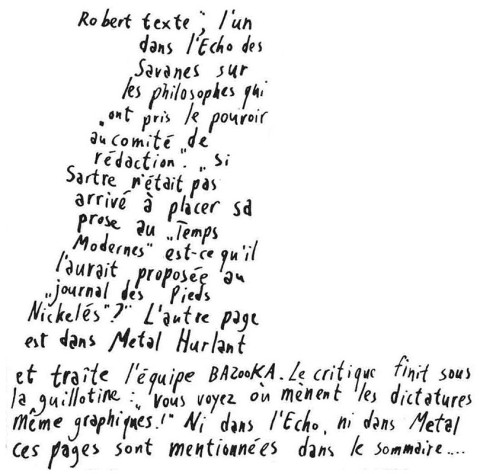 Robert texte", l'un
dans l'Echo des
Savanes sur
les philosophes qui
"ont pris le pouvoir
au comité de
rédaction". "Si
Sartre n'était pas
arrivé à placer sa
prose au "Temps
Modernes" est-ce qu'il
l'aurait proposée au
"journal des Pieds
Nickelés"?" L'autre page
est dans Metal Hurlant
et traîte l'équipe BAZOOKA. Le critique finit sous
la guillotine: "Vous voyez où mènent les dictatures
même graphiques!" Ni dans l'Echo, ni dans Metal
ces pages sont mentionnées dans le sommaire....